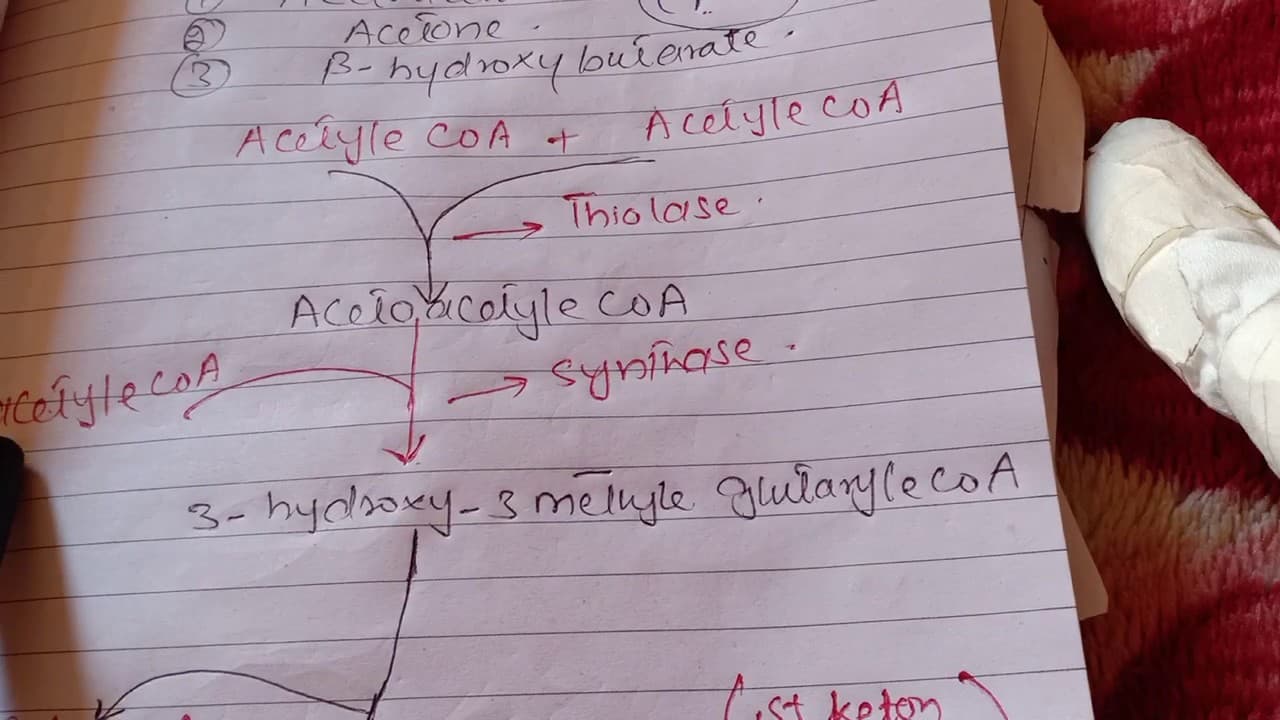 ② Acetone.
③ β-hydroxybuterate.
Acetyle CoA + Acetyle CoA
→ Thiolase.
Aceto acetyle CoA
Acetyle CoA
→ Synthase.
3-hydroxy-3 methyle glutaryle CoA
(1st keton)